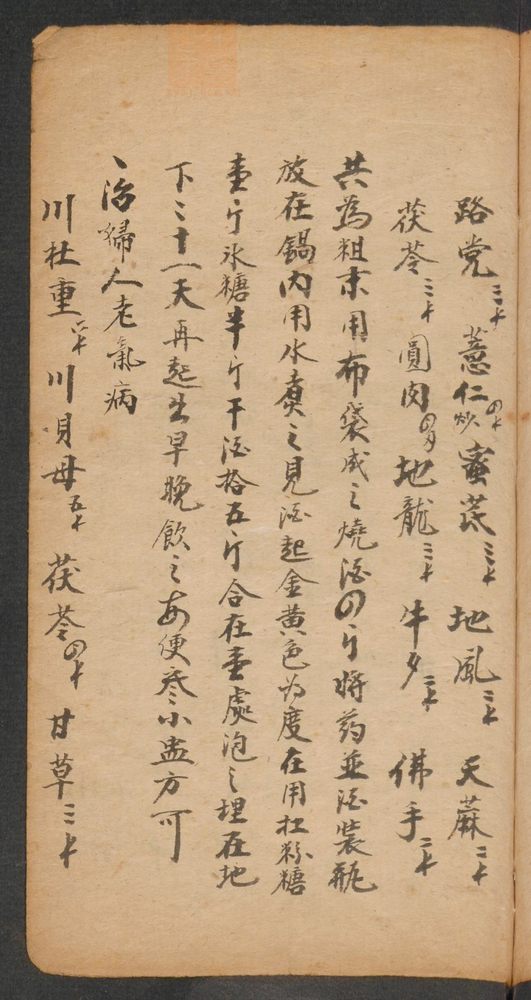 路党三卜 薏仁炒四卜 蜜芪三卜 地風三卜 天蔴二卜
茯苓三卜 圓肉四 地龍三卜 牛夕二卜 佛手二卜
共為粗末用布袋成之燒酒四斤將葯並酒裝瓶
放在鍋內用水煑之見酒起金黄色为度在用紅粉糖
壹斤氷糖半斤干酒拾五斤合在壹處泡之埋在地
下二十一天再起出早晚飲之每便叁小盅方可
丶治婦人老氣病
川杜重六卜 川貝母五卜 茯苓四卜 甘草三卜